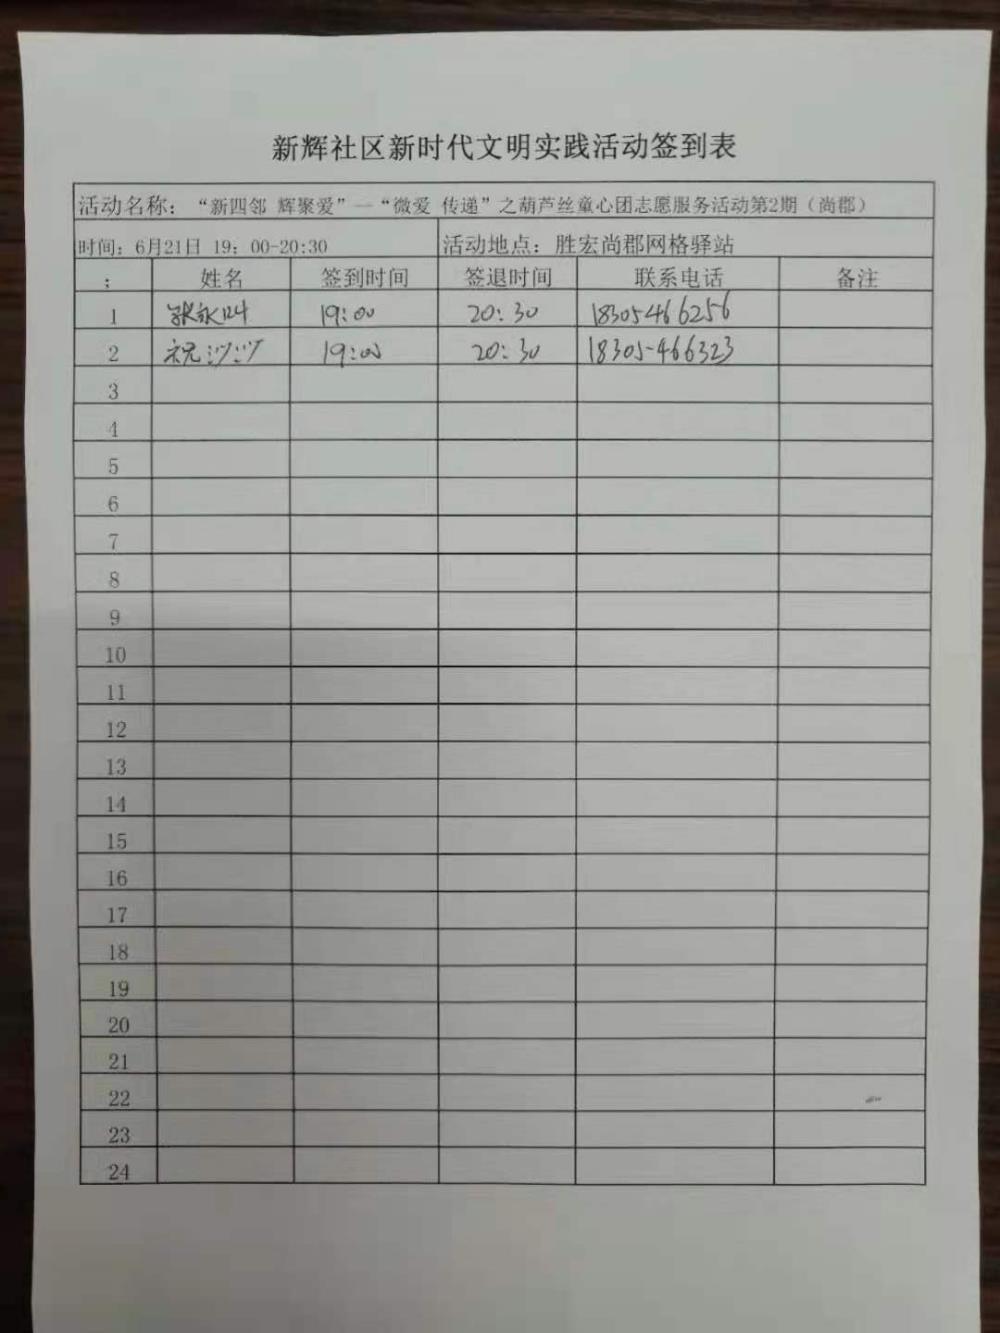 新辉社区新时代文明实践活动签到表
活动名称：“新四邻 辉聚爱”—“微爱 传递”之葫芦丝童心团志愿服务活动第2期（尚郡）
时间：6月21日 19：00-20:30 活动地点：胜宏尚郡网格驿站
： 姓名 签到时间 签退时间 联系电话 备注
1 19:00 20:30 18305466256
2 祝沙沙 19:00 20:30 18305466323
3
4
5
6
7
8
9
10
11
12
13
14
15
16
17
18
19
20
21
22
23
24